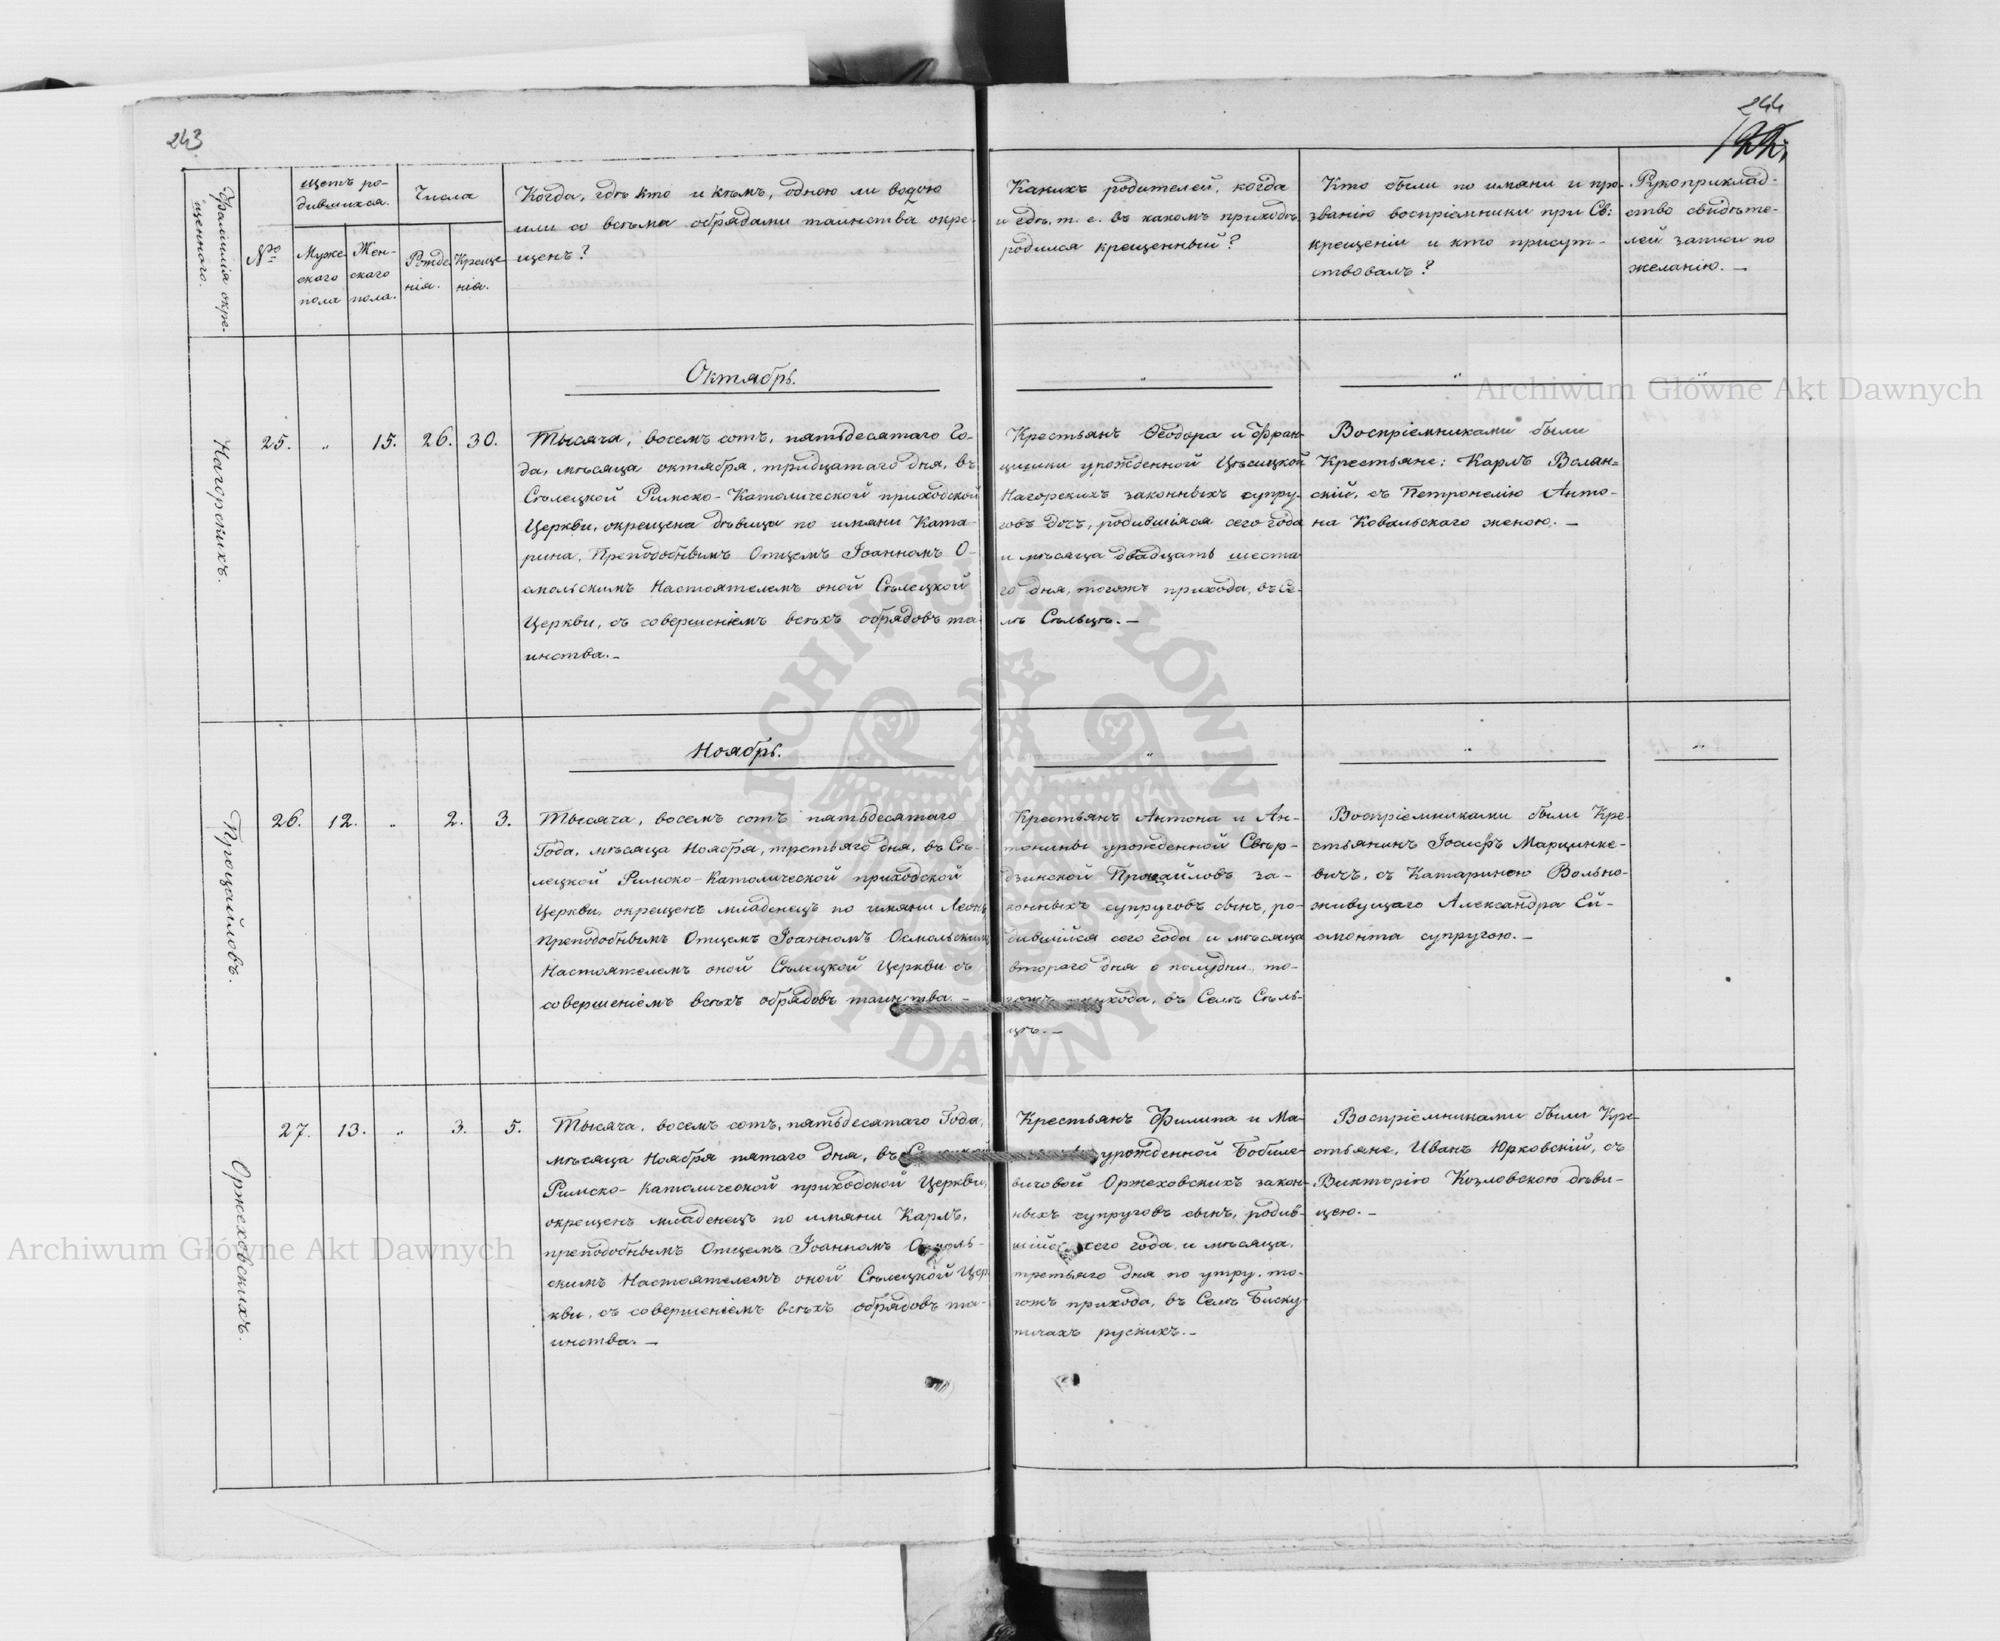 243
244
122.
Фамилія окре-
щенного.
№
щетъ ро-
дившихся.
Муже-
скаго
пола
Жен-
скаго
пола.
Числа
Рожде
нія.
Креще
нія.
Когда, гдѣ кто и кѣмъ, одною ли водою
или со всѣми обрядами таинства окре-
щенъ?
Какихъ родителей, когда
и гдѣ, т. е. въ какомъ приходѣ
родился крещенный?
Кто были по имяни и про-
званію воспріемники при Св:
крещеніи и кто присут-
ствовалъ?
Рукоприклад-
ство свидѣте-
лей записи по
желанію. —
Октябрь.
Нагорскихъ.
25. „ 15. 26. 30.
Тысяча, восемъ сотъ, пятьдесятаго Го-
да, мѣсяца октября, тридцатаго дня, въ
Сѣлецкой Римско-Католической приходской
Церкви, окрещена дѣвица по имяни Ката-
рина, Преподобнымъ Отцемъ Іоанномъ О-
смольскимъ Настоятелемъ оной Сѣлецкой
Церкви, съ совершеніемъ всѣхъ обрядовъ та-
инства. —
Крестьянъ Ѳеодора и Фран-
цишки урожденной Цѣсицкой
Нагорскихъ законныхъ супру-
говъ дочь, родившіяся сего года
и мѣсяца двадцать шеста-
го дня, тогожъ прихода, въ Се-
лѣ Сѣльцѣ. —
Воспріемниками были
Крестьяне: Карлъ Волян-
скій, съ Петронелію Анто-
на Ковальскаго женою. —
Ноябрь.
Процайловъ.
26. 12. „ 2. 3.
Тысяча, восемъ сотъ пятьдесятаго
Года, мѣсяца Ноября, третьяго дня, въ Сѣ-
лецкой Римско-Католической приходской
Церкви, окрещенъ младенецъ по имяни Леонъ,
Преподобнымъ Отцемъ Іоанномъ Осмольскимъ
Настоятелемъ оной Сѣлецкой Церкви съ
совершеніемъ всѣхъ обрядовъ таинства. —
Крестьянъ Антона и Ан-
тонины урожденной Свѣр-
дзинской Процайловъ за-
конныхъ супруговъ сынъ, ро-
дившійся сего года и мѣсяца
втораго дня о полудни, то-
гожъ прихода, въ Селѣ Сѣль-
цѣ. —
Воспріемниками были Кре-
стьянинъ Іосифъ Марцинке-
вичъ, съ Катариною Вольно-
живущаго Александра Ей-
смонта супругою. —
Оржеховскихъ.
27. 13. „ 3. 5.
Тысяча, восемъ сотъ, пятьдесятаго Года,
мѣсяца Ноября пятаго дня, въ
Римско-Католической приходской Церкви,
окрещенъ младенецъ по имяни Карлъ,
преподобнымъ Отцемъ Іоанномъ Осмоль-
скимъ Настоятелемъ оной Сѣлецкой Цер-
кви, съ совершеніемъ всѣхъ обрядовъ та-
инства. —
Крестьянъ Филипа и Ма-
урожденной Бобиле-
вичовой Оржеховскихъ закон-
ныхъ супруговъ сынъ, родив-
шійся сего года и мѣсяца,
третьяго дня по утру, то-
гожъ прихода, въ Селѣ Биску-
пичахъ рускихъ. —
Воспріемниками были Кре-
стьяне, Иванъ Юрковскій, съ
Викторіею Козловскою дѣви-
цею. —
Archiwum Główne Akt Dawnych
Archiwum Główne Akt Dawnych
ARCHIWUM GŁÓWNE AKT DAWNYCH